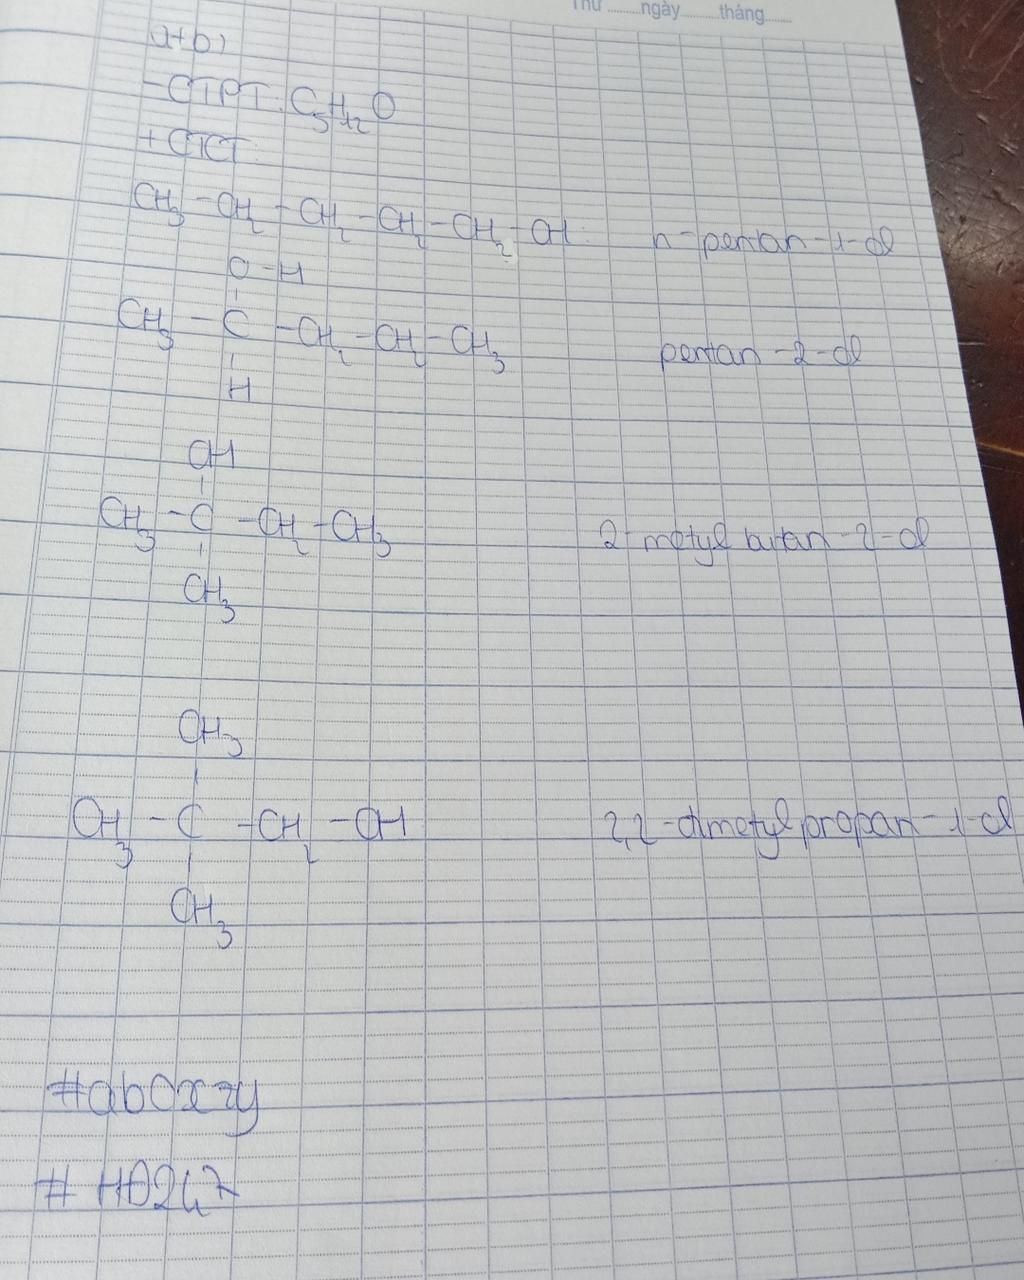 Thứ ........ ngày ........ tháng ........
a+b)
- CTPT: C5H12O
+ CTCT:
CH3 - CH2 - CH2 - CH2 - CH2 - OH: n-pentan-1-ol
O-H
CH3 - C - CH2 - CH2 - CH3 pentan-2-ol
H
OH
CH3 - C - CH2 - CH3 2-metyl butan-2-ol
CH3
CH3
CH3 - C - CH2 - OH 2,2-dimetyl propan-1-ol
CH3
#ab0xzy